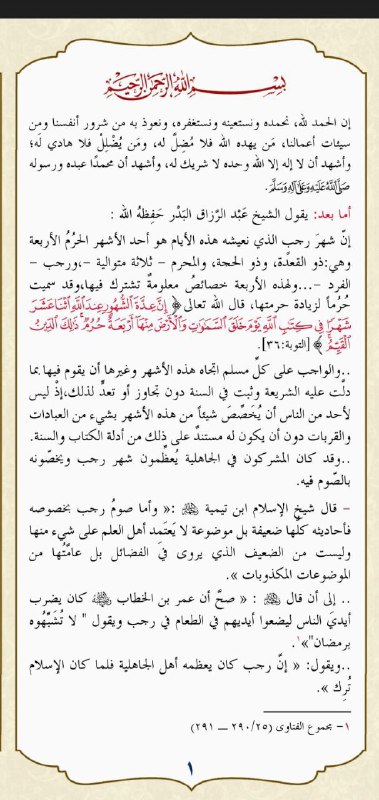 بسم الله الرحمن الرحيم
إن الحمد لله، نحمده ونستعينه ونستغفره، ونعوذ به من شرور أنفسنا ومن
سيئات أعمالنا، مَن يهده الله فلا مُضِلّ له، ومَن يُضْلِلْ فلا هادي له؛
وأشهد أن لا إله إلا الله وحده لا شريك له، وأشهد أن محمدًا عبده ورسوله
صَلَّى اللهُ عَلَيْهِ وَعَلَى آلِهِ وَسَلَّمَ.
أما بعد: يقول الشيخ عَبْد الرَّزاق البَدْر حَفِظَهُ الله :
إنّ شهرَ رجب الذي نعيشه هذه الأيام هو أحد الأشهر الحرُمُ الأربعة
وهي:ذو القعدَة، وذو الحجة، والمحرم - ثلاثة متوالية -،ورجب -
الفرد -...ولهذه الأربعة خصائصُ معلومةٌ تشترك فيها،وقد سميت
حُرُماً لزيادة حرمتها، قال الله تعالى ﴿ إِنَّ عِدَّةَ الشُّهُورِ عِندَ اللَّهِ اثْنَا عَشَرَ
شَهْرًا فِي كِتَٰبِ اللَّهِ يَوْمَ خَلَقَ السَّمَٰوَٰتِ وَالْأَرْضَ مِنْهَا أَرْبَعَةٌ حُرُمٌ ذَٰلِكَ الدِّينُ
الْقَيِّمُ ﴾ [التوبة:٣٦].
..والواجب على كلِّ مسلم اتجاه هذه الأشهر وغيرها أن يقوم فيها بما
دلّت عليه الشريعة وثبت في السنة دون تجاوز أو تعدٍّ لذلك،إذْ ليس
لأحد من الناس أن يُخصّصَ شيئاً من هذه الأشهر بشيء من العبادات
والقربات دون أن يكون له مستندٌ على ذلك من أدلة الكتاب والسنة.
..وقد كان المشركون في الجاهلية يعظِّمون شهر رجب ويخصّونه
بالصّوم فيه.
- قال شيخ الإسلام ابن تيمية رحمه الله :« وأما صومُ رجب بخصوصه
فأحاديثه كلُّها ضعيفة بل موضوعة لا يَعتَمِد أهل العلم على شيء منها
وليست من الضعيف الذي يروى في الفضائل بل عامّتُها من
الموضوعات المكذوبات ».
.. إلى أن قال رحمه الله : « صحَّ أن عمر بن الخطاب رضي الله عنه كان يضرب
أيديَ الناس ليضعوا أيديهم في الطعام في رجب ويقول " لا تُشَبِّهُوه
برمضان"»١.
..ويقول: « إنّ رجب كان يعظمه أهل الجاهلية فلما كان الإسلام
تُرِك ».
١- مجموع الفتاوى (٢٥/ ٢٩٠ — ٢٩١)
١